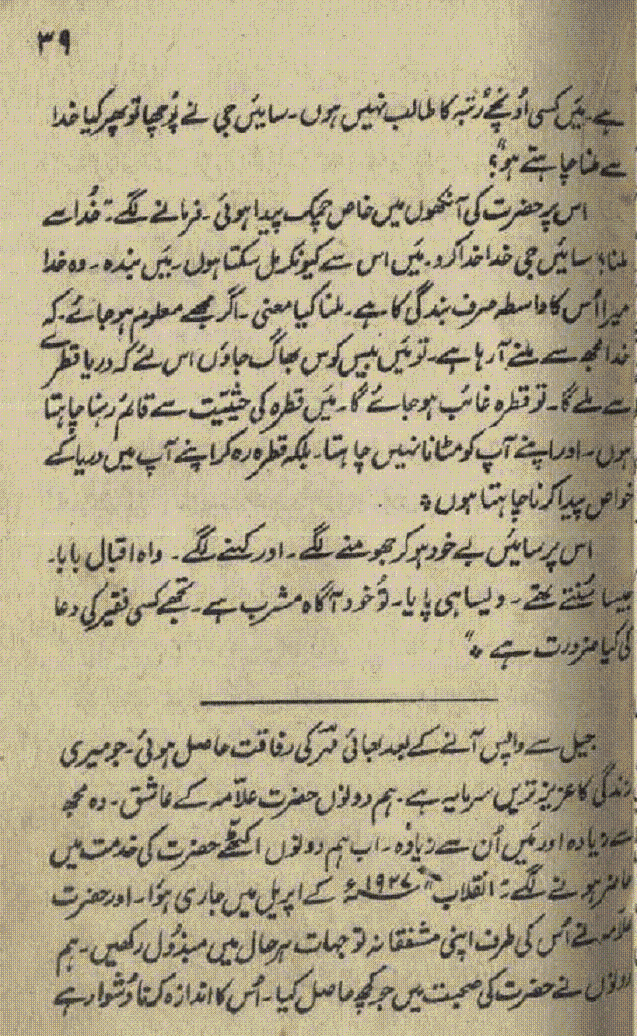 ۳۹
ہے۔ میَں کسی اُونچے رُتبہ کا طالب نہیں ہوں۔ سائیں جی نے پُوچھا تو پھر کیا خدا
سے ملنا چاہتے ہو"؟
اس پر حضرت کی آنکھوں میں خاص چمک پیدا ہوئی۔ فرمانے لگے۔ "خُدا سے
ملنا؟ سائیں جی خدا خدا کرو۔ میَں اس سے کیونکر مل سکتا ہوں۔ میَں بندہ۔ وہ خدا
میرا اُس کا واسطہ صرف بندگی کا ہے۔ ملنا کیا معنی۔ اگر مجھے معلوم ہو جائے۔ کہ
خدا مجھ سے ملنے آ رہا ہے۔ تو میَں بیس کوس بھاگ جاؤں اس لئے کہ دریا قطرے
سے ملے گا۔ تو قطرہ غائب ہو جائے گا۔ میَں قطرہ کی حیثیّت سے قائم رہنا چاہتا
ہوں۔ اور اپنے آپ کو مٹانا نہیں چاہتا۔ بلکہ قطرہ رہ کر اپنے آپ میں دریا کے
خواص پیدا کرنا چاہتا ہوں ٭
اس پر سائیں بے خود ہو کر جھومنے لگے۔ اور کہنے لگے۔ واہ اقبال بابا۔
جیسا سُنتے تھے۔ ویسا ہی پایا۔ تُو خود آگاہ مشرب ہے۔ تجھے کسی فقیر کی دعا
کی کیا ضرورت ہے ٭"
جیل سے واپس آنے کے بعد بھائی مہر کی رفاقت حاصل ہوئی۔ جو میری
زندگی کا عزیز ترین سرمایہ ہے۔ ہم دونوں حضرت علاّمہ کے عاشق۔ وہ مجھ
سے زیادہ اور میَں اُن سے زیادہ۔ اب ہم دونوں اکٹھّے حضرت کی خدمت میں
حاضر ہونے لگے۔ "انقلاب" ۱۹۲۷ء کے اپریل میں جاری ہؤا۔ اور حضرت
علاّمہ نے اُس کی طرف اپنی مشفقانہ توجہات ہر حال میں مبذُول رکھیں۔ ہم
دونوں نے حضرت کی صحبت میں جو کچھ حاصل کیا۔ اُس کا اندازہ کرنا دُشوار ہے